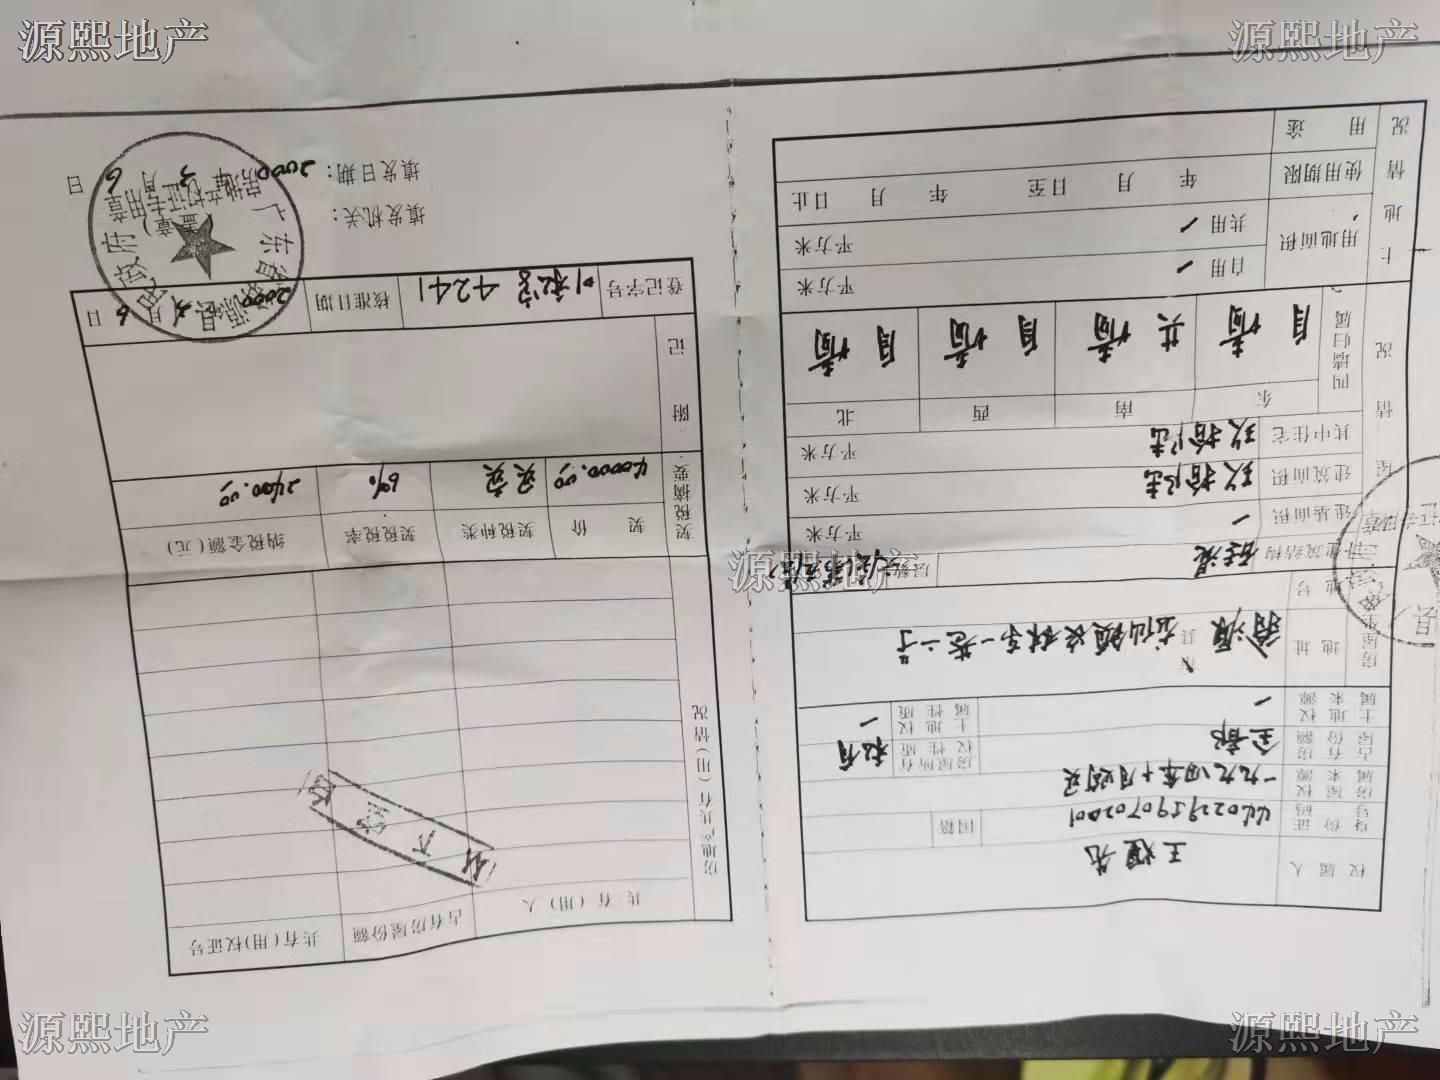 源熙地产
源熙地产
权属人
王煌先
身份证号码
国籍
房屋权属来源
一九九四年十月购买
占有房屋份额
全部
房屋所有权性质
私有
土地权属来源
一
土地权属性质
一
房屋坐落
地址
翁源
县
龙仙镇
地号
建筑结构
砼混
层数
建基面积
一
平方米
建筑面积
玖拾陆
平方米
其中住宅
玖拾陆
平方米
四墙归属
东
南
西
北
自墙
共墙
自墙
自墙
房屋情况
土地情况
用地面积
自用
平方米
共用
平方米
使用期限
年 月 日至 年 月 日止
用途
共有(用)人
占有房屋份额
共有(用)权证号
房地产共有(用)情况
以下空白
契税摘要
契价
契税种类
契税税率
纳税金额(元)
40000.00
买卖
6%
2400.00
附记
登记字号
4241
核准日期
2000
月
6
日
填发机关:
(盖章)
填发日期:
2000
年
3
月
6
日
广东省翁源县人民政府
房地产权证专用章
源熙地产
源熙地产
源熙地产